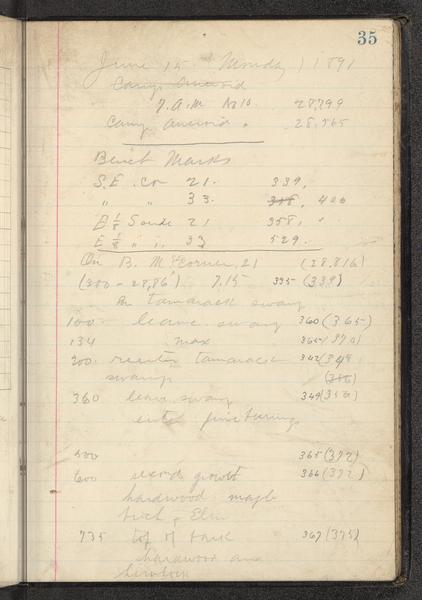 35
June 15 Monday 1891
Camp Aneroid
7. A.M. No 10. 28,799
Camp aneroid " 28.565
Bench Marks
S.E. Cor 21. 339,
" " 33. 318, 400
E 1/8 S side 21 358, "
E 1/8 " " 33 529.
On B. M. Corner, 21 (28,816)
(350 - 28,86) 7.15 335 (339)
In tamarack swamp
100 leave swamp 360 (365)
134 max 365 (370)
200. reenter tamarack 342 (348
swamp (356)
360 leave swamp 349 (356)
enter pine
500 365 (372)
600 second growth 366 (372)
hardwood maple
birch & Elm
735 top of bank 367 (375)
hardwood and
hemlock